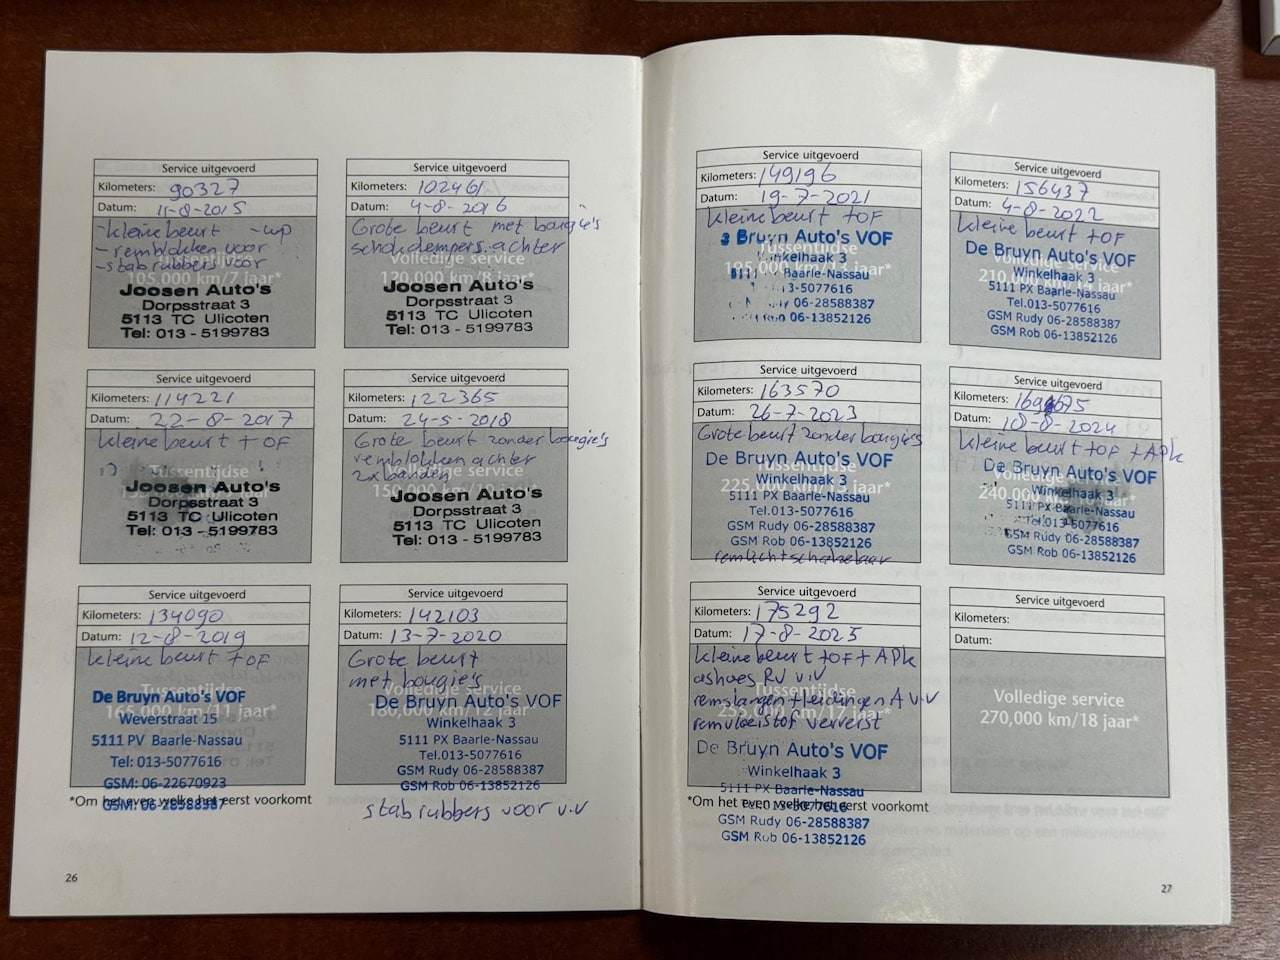 Service uitgevoerd
Kilometers: 90327
Datum: 11-8-2015
-kleine beurt -wp
-remblokken voor
-stabrubbers voor
Tussentijdse
105,000 km/7 jaar*
Joosen Auto's
Dorpsstraat 3
5113 TC Ulicoten
Tel: 013 - 5199783
Service uitgevoerd
Kilometers: 102461
Datum: 4-8-2016
Grote beurt met bougie's
schokdempers achter
Volledige service
120,000 km/8 jaar*
Joosen Auto's
Dorpsstraat 3
5113 TC Ulicoten
Tel: 013 - 5199783
Service uitgevoerd
Kilometers: 114221
Datum: 22-8-2017
kleine beurt + OF
Joosen Auto's
Dorpsstraat 3
5113 TC Ulicoten
Tel: 013 - 5199783
Service uitgevoerd
Kilometers: 122365
Datum: 24-5-2018
Grote beurt zonder bougie's
remblokken achter
2x banden
Volledige service
150,000 km/10 jaar*
Joosen Auto's
Dorpsstraat 3
5113 TC Ulicoten
Tel: 013 - 5199783
Service uitgevoerd
Kilometers: 134090
Datum: 12-8-2019
kleine beurt + OF
Tussentijdse
165,000 km/11 jaar*
De Bruyn Auto's VOF
Weverstraat 15
5111 PV Baarle-Nassau
Tel: 013-5077616
GSM: 06-22670923
GSM: 06-28588387
Service uitgevoerd
Kilometers: 142103
Datum: 13-7-2020
Grote beurt
met bougie's
Volledige service
180,000 km/12 jaar*
De Bruyn Auto's VOF
Winkelhaak 3
5111 PX Baarle-Nassau
Tel.013-5077616
GSM Rudy 06-28588387
GSM Rob 06-13852126
stabrubbers voor v.v
*Om het even welke het eerst voorkomt
26
Service uitgevoerd
Kilometers: 149196
Datum: 19-7-2021
kleine beurt + OF
Tussentijdse
195,000 km/13 jaar*
Bruyn Auto's VOF
Winkelhaak 3
Baarle-Nassau
3-5077616
06-28588387
06-13852126
Service uitgevoerd
Kilometers: 156437
Datum: 4-8-2022
kleine beurt + OF
Volledige service
210,000 km/14 jaar*
De Bruyn Auto's VOF
Winkelhaak 3
5111 PX Baarle-Nassau
Tel.013-5077616
GSM Rudy 06-28588387
GSM Rob 06-13852126
Service uitgevoerd
Kilometers: 163570
Datum: 26-7-2023
Grote beurt zonder bougie's
Tussentijdse
225,000 km/15 jaar*
De Bruyn Auto's VOF
Winkelhaak 3
5111 PX Baarle-Nassau
Tel.013-5077616
GSM Rudy 06-28588387
GSM Rob 06-13852126
remlichtschakelaar
Service uitgevoerd
Kilometers:
Datum: 18-8-2024
kleine beurt + OF + APk
240,000 km/ jaar*
De Bruyn Auto's VOF
Winkelhaak 3
5111 PX Baarle-Nassau
Tel.013-5077616
GSM Rudy 06-28588387
GSM Rob 06-13852126
Service uitgevoerd
Kilometers: 175292
Datum: 17-8-2025
kleine beurt + OF + APk
ashoes RV v.v
remslangen + leidingen A v.v
remvloeistof ververst
Tussentijdse
255,000 km/17 jaar*
De Bruyn Auto's VOF
Winkelhaak 3
5111 PX Baarle-Nassau
Tel.013-5077616
GSM Rudy 06-28588387
GSM Rob 06-13852126
Service uitgevoerd
Kilometers:
Datum:
Volledige service
270,000 km/18 jaar*
*Om het even welke het eerst voorkomt
27